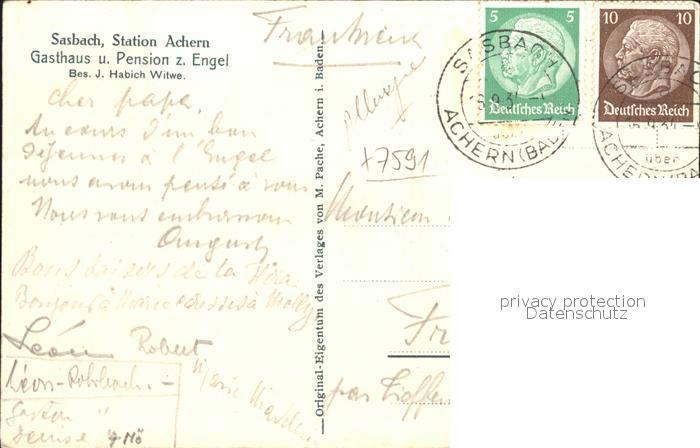 Sasbach, Station Achern
Gasthaus u. Pension z. Engel
Bes. J. Habich Witwe.
Frankreich
cher papa,
Au cours d'un bon
déjeuner à l'Engel
nous avons pensé à vous
Nous vous embrassons
August
Bons baisers de ta
Bonjour à Marie caresses à Molly
Léon Robert
Léon - Rohrbach. -
Gaston "
Denise "
Marie
Original-Eigentum des Verlages von M. Pache, Achern i. Baden.
+7591
Monsieur
Fr
par
5 5
Deutsches Reich
10 10
Deutsches Reich
SASBACH
ACHERN (BADEN)
über
privacy protection
Datenschutz